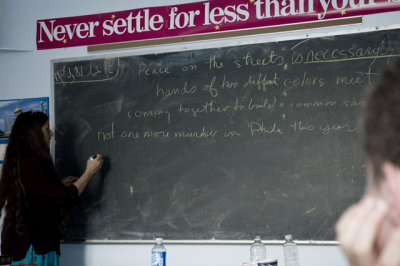 Never settle for less than your
Peace on the streets is necessary
hands of two different colors meet
coming together to build a common
not one more murder in Phila this year